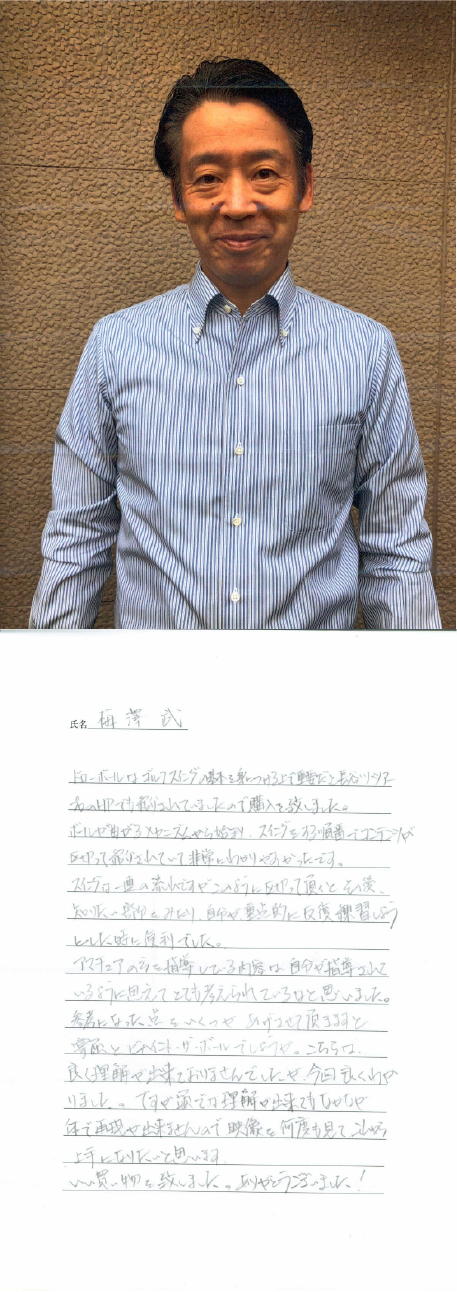 氏名 梅澤 武
ドローボールはゴルフスイングの基本を身につける上で重要だと長谷川ツアー
プロのHPでも紹介されていましたので購入を致しました。
ボールが曲がるメカニズムから始まり、スイングをする順番でコンテンツが
区切って紹介されていて非常にわかりやすかったです。
スイングは一連の流れですがこのように区切って頂くとその後、
知りたい部分をみたり、自分が重点的に反復練習しよう
とした時に便利でした。
アマチュアの方を指導している内容は自分が指導されて
いるように思えてとても考えられているなと思いました。
参考になった点をいくつかあげさせて頂きますと
掌屈とビハインド・ザ・ボールでしょうか。こちらは、
良く理解が出来ておりませんでしたが、今回良くわか
りました。ですが頭では理解が出来てもなかなか
体で再現が出来ませんので映像を何度も見てこれから
上手になりたいと思います。
いい買い物を致しました。ありがとうございました！